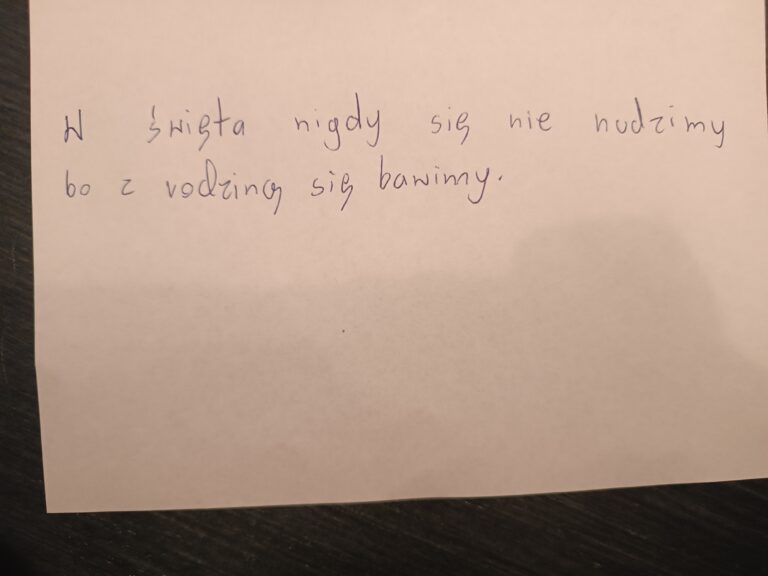 W święta nigdy się nie nudzimy
bo z rodziną się bawimy.